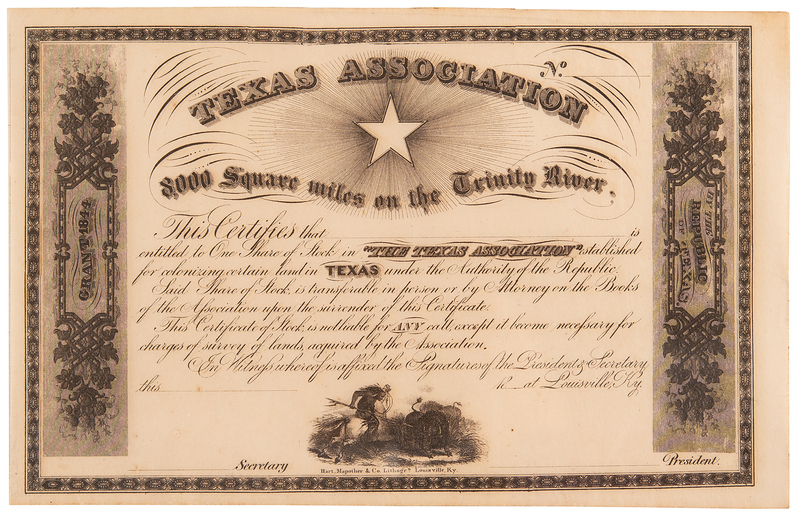 TEXAS ASSOCIATION
No
8,000 Square miles on the Trinity River.
This Certifies that is
entitled to One Share of Stock in "THE TEXAS ASSOCIATION" established
for colonizing certain land in TEXAS under the Authority of the Republic.
Said Share of Stock, is transferable in person or by Attorney on the Books
of the Association upon the surrender of this Certificate.
This Certificate of Stock, is not liable for ANY call, except it become necessary for
charges of survey of lands, acquired by the Association.
In Witness whereof is affixed the Signatures of the President & Secretary
this 18 at Louisville, Ky.
Secretary
President.
Hart, Mapother & Co. Lithogrs. Louisville, Ky.
GRANT 1844
BY THE
REPUBLIC
OF
TEXAS